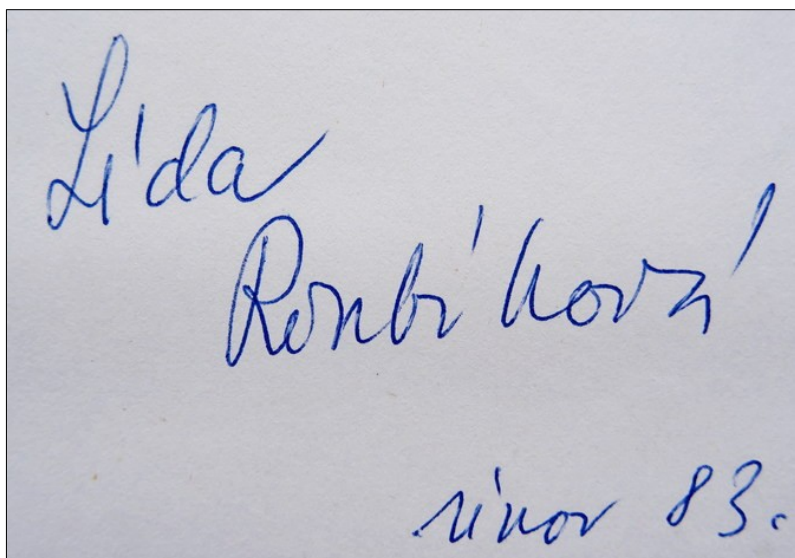 Lída
Roubíková
únor 83.